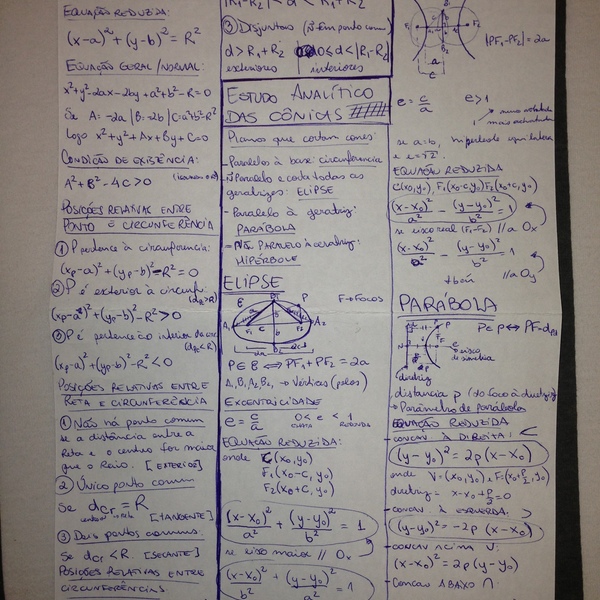 EQUAÇÃO REDUZIDA:
(x-a)² + (y-b)² = R²
EQUAÇÃO GERAL/NORMAL:
x²+y²-2ax-2by+a²+b²-R=0
Se A: -2a | B: -2b | C: a²+b²-R²
Logo x²+y²+Ax+By+C=0
CONDIÇÃO DE EXISTÊNCIA:
A²+B²-4C>0
POSIÇÕES RELATIVAS ENTRE
PONTO E CIRCUFERÊNCIA
① P pertence à circunferencia:
(xp-a)²+(yp-b)²-R²=0
② P é exterior à circunf:
(dp>R)
(xp-a)²+(yp-b)²-R²>0
③ P é pertence ao interior da circ
(dpc<R)
(xp-a)²+(yp-b)²-R²<0
POSIÇÕES RELATIVAS ENTRE
RETA E CIRCUNFERÊNCIA
① Não há ponto comum
se a distância entre a
reta e o centro for maior
que o raio. [EXTERIOR]
② Único ponto comum
Se dcr = R
[TANGENTE]
③ Dois pontos comuns:
Se dcr < R. [SECANTE]
POSIÇÕES RELATIVAS ENTRE
CIRCUNFERÊNCIAS:
|R₁-R₂| < d < R₁+R₂
③ Disjuntas (ñ tem ponto comum)
d>R₁+R₂ | 0≤d<|R₁-R₂
exteriores | interiores
ESTUDO ANALÍTICO
DAS CÔNICAS
Planos que cortam cones:
- Paralelos à base: circunferencia
- ñ Paralelo e corta todas as
geratrizes: ELIPSE
- Paralelo à geratriz:
PARÁBOLA
- PARALELO À GERATRIZ:
HIPÉRBOLE
ELIPSE
B P F→Focos
A₁ F₁ C F₂ A₂
2a
P∈B ⟺ PF₁+PF₂=2a
A₁B₁A₂B₂ → Vértices (polos)
EXCENTRICIDADE
e = c/a 0 < e < 1
EQUAÇÃO REDUZIDA:
onde C(x₀,y₀)
F₁(x₀-c, y₀)
F₂(x₀+c, y₀)
(x-x₀)²/a² + (y-y₀)²/b² = 1
se eixo maior // Ox
(x-x₀)²/b² + (y-y₀)²/a² = 1
|PF₁-PF₂|=2a
e = c/a e>1
se a=b, hiperbole equilatera
e e=√2.
EQUAÇÃO REDUZIDA
C(x₀,y₀), F₁(x₀-c,y₀) F₂(x₀+c, y₀)
(x-x₀)²/a² - (y-y₀)²/b² = 1
se eixo real (F₁-F₂) // a Ox
(x-x₀)²/a² - (y-y₀)²/b² = 1
// a Oy
PARÁBOLA
P∈p ⟷ PF=dpd
eixo de
simetria
diretriz
distancia p (do foco à diretriz)
→ Parâmetro de parábola
EQUAÇÃO REDUZIDA
- CONCAV À DIREITA: ⊂
(y-y₀)² = 2p(x-x₀)
onde V=(x₀,y₀) F=(x₀+p/2, y₀)
diretriz = x-x₀+p/2=0
- CONCAV. À ESQUERDA: ⊃
(y-y₀)² = -2p(x-x₀)
- CONCAV ACIMA U:
(x-x₀)² = 2p(y-y₀)
- CONCAV ABAIXO ∩: